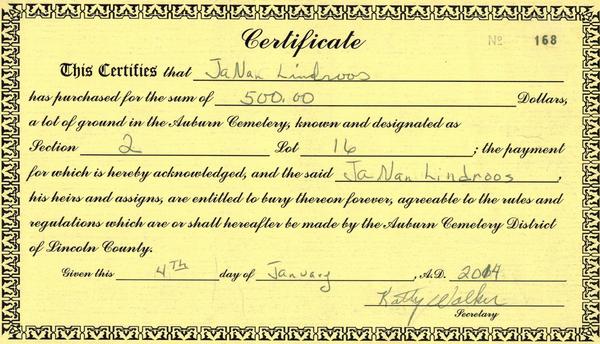 Certificate
No 168
This Certifies that JaNan Lindroos
has purchased for the sum of 500.00 Dollars,
a lot of ground in the Auburn Cemetery, known and designated as
Section 2 Lot 16 ; the payment
for which is hereby acknowledged, and the said JaNan Lindroos ,
his heirs and assigns, are entitled to bury thereon forever, agreeable to the rules and
regulations which are or shall hereafter be made by the Auburn Cemetery District
of Lincoln County.
Given this 4TH day of January , A.D. 2014
Kathy Walker
Secretary